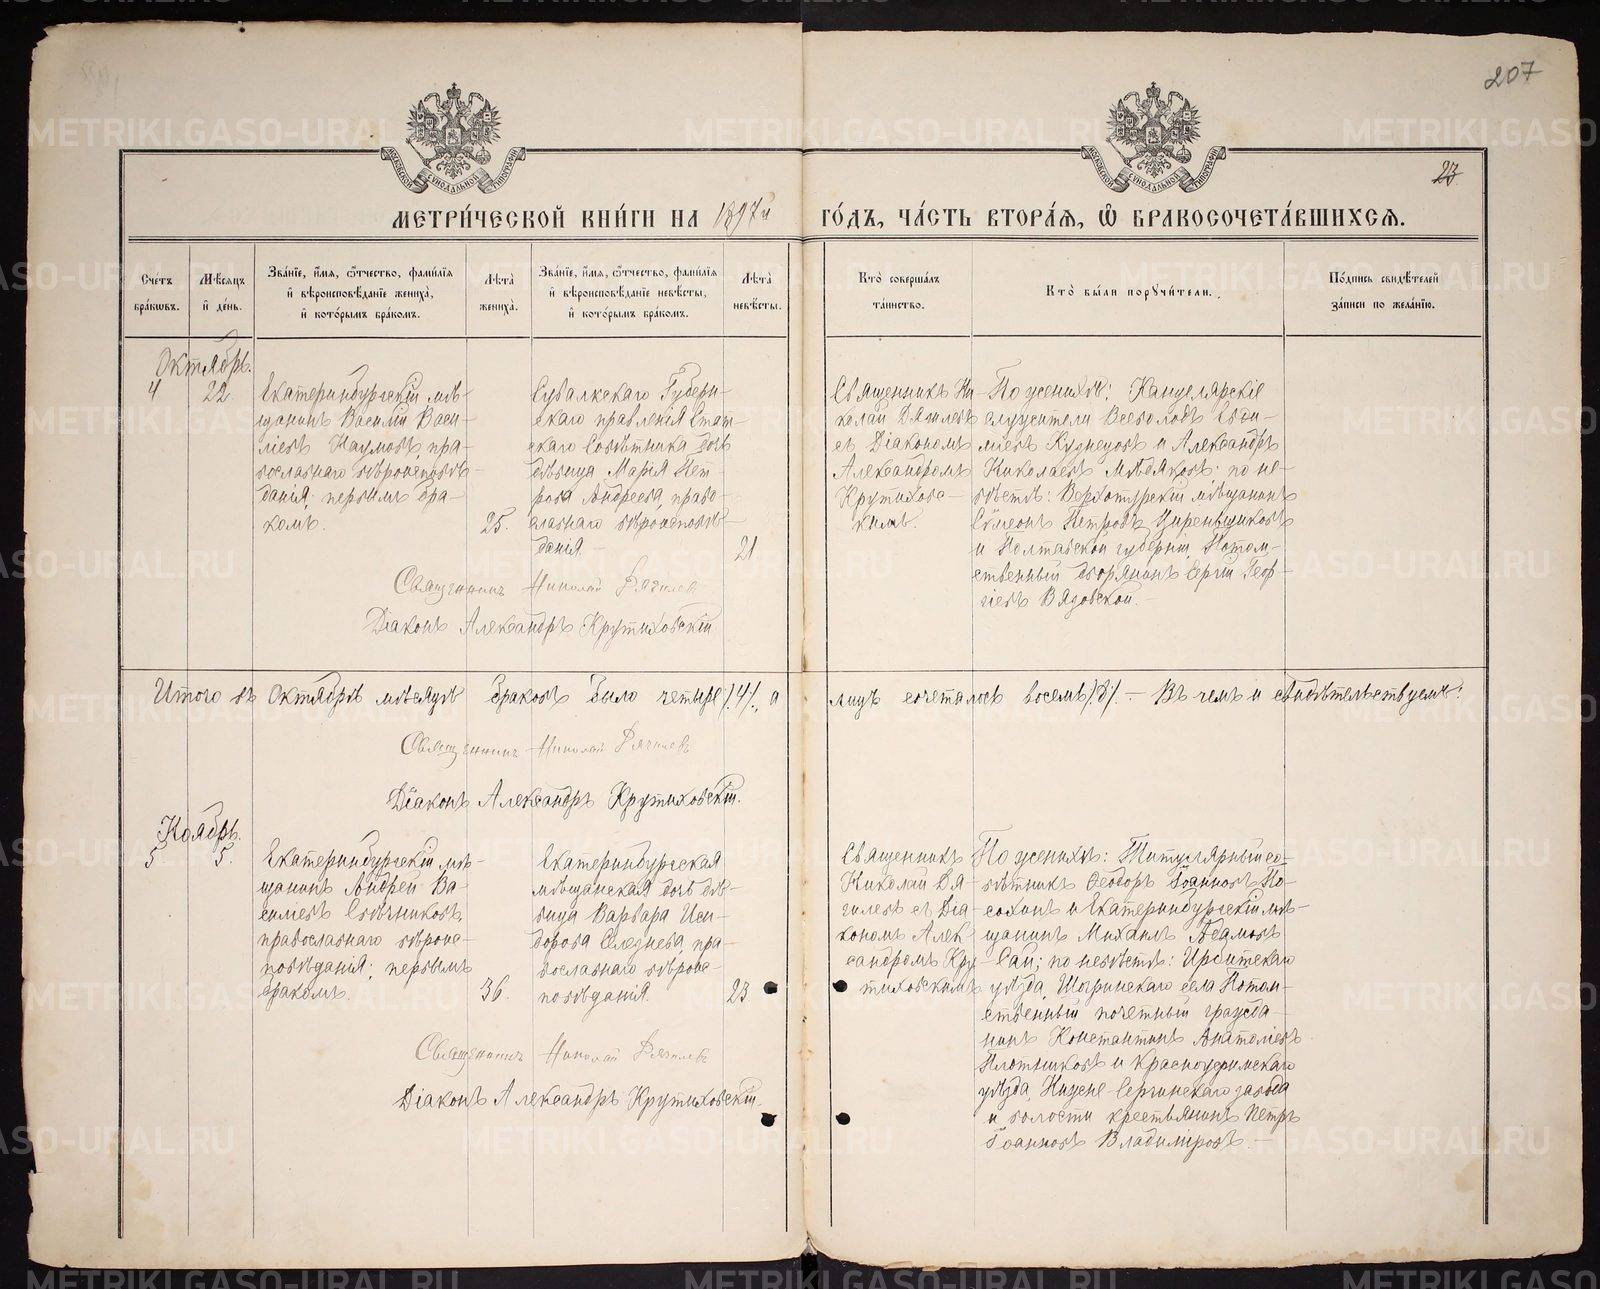 207
23
МЕТРИ́ЧЕСКОЙ КНИ́ГИ НА 1897й ГО́ДЪ, ЧА́СТЬ ВТОРА́Я, Ѿ БРАКОСОЧЕТА́ВШИХСЯ.
Сче́тъ бра́кѡвъ.
Мѣ́сяцъ и҆ де́нь.
Зва́нїе, и҆́мя, ѻ҆́тчество, фами́лїя и҆ вѣроисповѣ́данїе жениха̀, и҆ кото́рымъ бра́комъ.
Лѣ́та жениха̀.
Зва́нїе, и҆́мя, ѻ҆́тчество, фами́лїя и҆ вѣроисповѣ́данїе невѣ́сты, и҆ кото́рымъ бра́комъ.
Лѣ́та невѣ́сты.
Кто̀ соверша́лъ та́инство.
Кто̀ бы́ли поручи́тели.
По́дпись свидѣ́телей за́писи по жела́нїю.
Октябрь.
4
22
Екатеринбургскій мѣ-
щанинъ Василій Васи-
ліевъ Наумовъ, пра-
вославнаго вѣроисповѣ-
данія; первымъ бра-
комъ.
25.
Сувалкскаго Губерн-
скаго правленія Стат-
скаго Совѣтника дочь
дѣвица Марія Пет-
рова Андреева, право-
славнаго вѣроисповѣ-
данія
21
Священникъ Ни-
колай Дягилевъ
съ Діакономъ
Александромъ
Крутиховс-
кимъ.
По женихѣ: Канцелярскіе
служители Всеволодъ
Кузнецовъ и Александръ
Николаевъ Мѣдяковъ; по не-
вѣстѣ: Верхотурскій мѣщанинъ
Сѵмеонъ Петровъ Ширенщиковъ
и Полтавской губерніи, Потом-
ственный дворянинъ Сергій Геор-
гіевъ Вязовской. -
Священникъ Николай Дягилевъ
Діаконъ Александръ Крутиховскій
Итого въ Октябрѣ мѣсяцѣ браковъ было четыре /4/, а лицъ сочеталось восемь /8/. - Въ чемъ и свидѣтельствуемъ:
Священникъ Николай Дягилевъ
Діаконъ Александръ Крутиховскій.
Ноябрь.
5
5.
Екатеринбургскій мѣ-
щанинъ Андрей Ва-
силіевъ Свѣчниковъ,
православнаго вѣроис-
повѣданія; первымъ
бракомъ.
36.
Екатеринбургская
мѣщанская дочь дѣ-
вица Варвара Иси-
дорова Селезнева, пра-
вославнаго вѣроис-
повѣданія.
23
Священникъ
Николай Дя-
гилевъ съ Діа-
кономъ Алек-
сандромъ Кру-
тиховскимъ
По женихѣ: Титулярный со-
вѣтникъ Ѳеодоръ Іоанновъ По-
сохинъ и Екатеринбургскій мѣ-
щанинъ Михаилъ Адамовъ
Сай; по невѣстѣ: Ирбитскаго
уѣзда, Шогринскаго села Потом-
ственный почетный гражда-
нинъ Константинъ Анатоліевъ
Плотниковъ и Красноуфимскаго
уѣзда, Нижне Сергинскаго завода
и волости крестьянинъ Петръ
Іоанновъ Владиміровъ. -
Священникъ Николай Дягилевъ
Діаконъ Александръ Крутиховскій.
METRIKI.GASO-URAL.RU